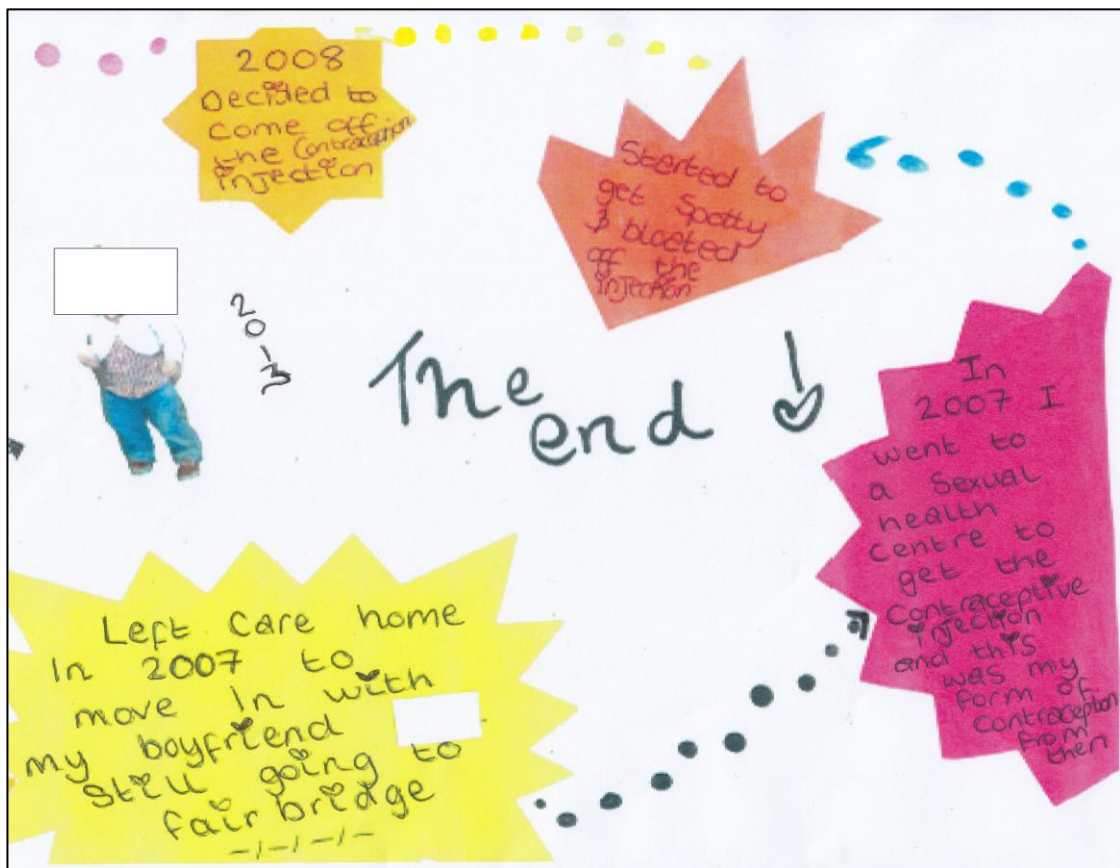 2008
Decided to
come off
the Contraception
injection
Started to
get Spotty
& bloated
off the
injection
The
end !
In
2007 I
went to
a Sexual
health
Centre to
get the
Contraceptive
injection
and this
was my
form of
Contraception
from
then
Left Care home
In 2007 to
move In with
my boyfriend
Still going to
fairbridge